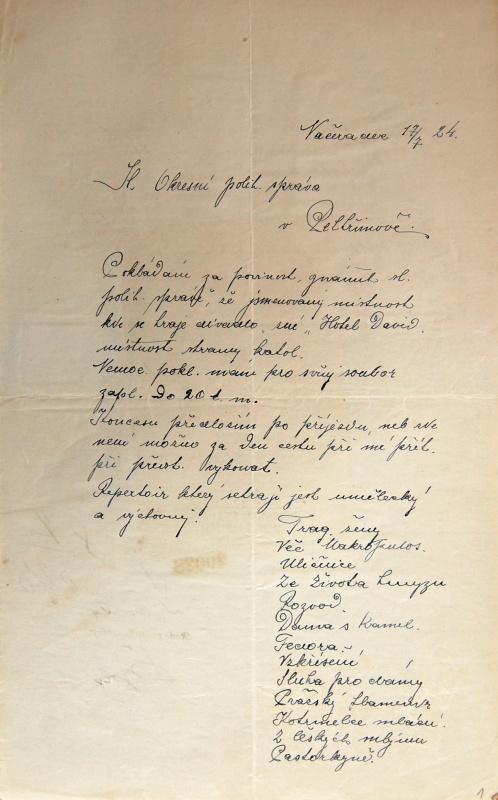 Načeradec 17/7. 24.
Sl. Okresní polit. správa
v Pelhřimově.
Pokládám za povinnost, sl.
polit. správě, že jmenovaný místnost
kde se hraje divadlo, zní „Hotel David.
místnost strany katol.
Nemoc. pokl. mám pro svůj soubor
zapl. Do 20 t. m.
předložím po příjezdu, neb zde
není možno za den cestu při mé
při předst. vykonat.
Repertoir který sehraji jest umělecký
a výchovný.
Trag. ženy
Věc Makropulos.
Uličnice
Ze života hmyzu
Rozvod.
Dama s Kamel.
Fedora.
Vzkříšení
Sluha pro dámy
Pražský
Kotrmelce mládí.
Z českých mlýnů
Pastorkyně.
1